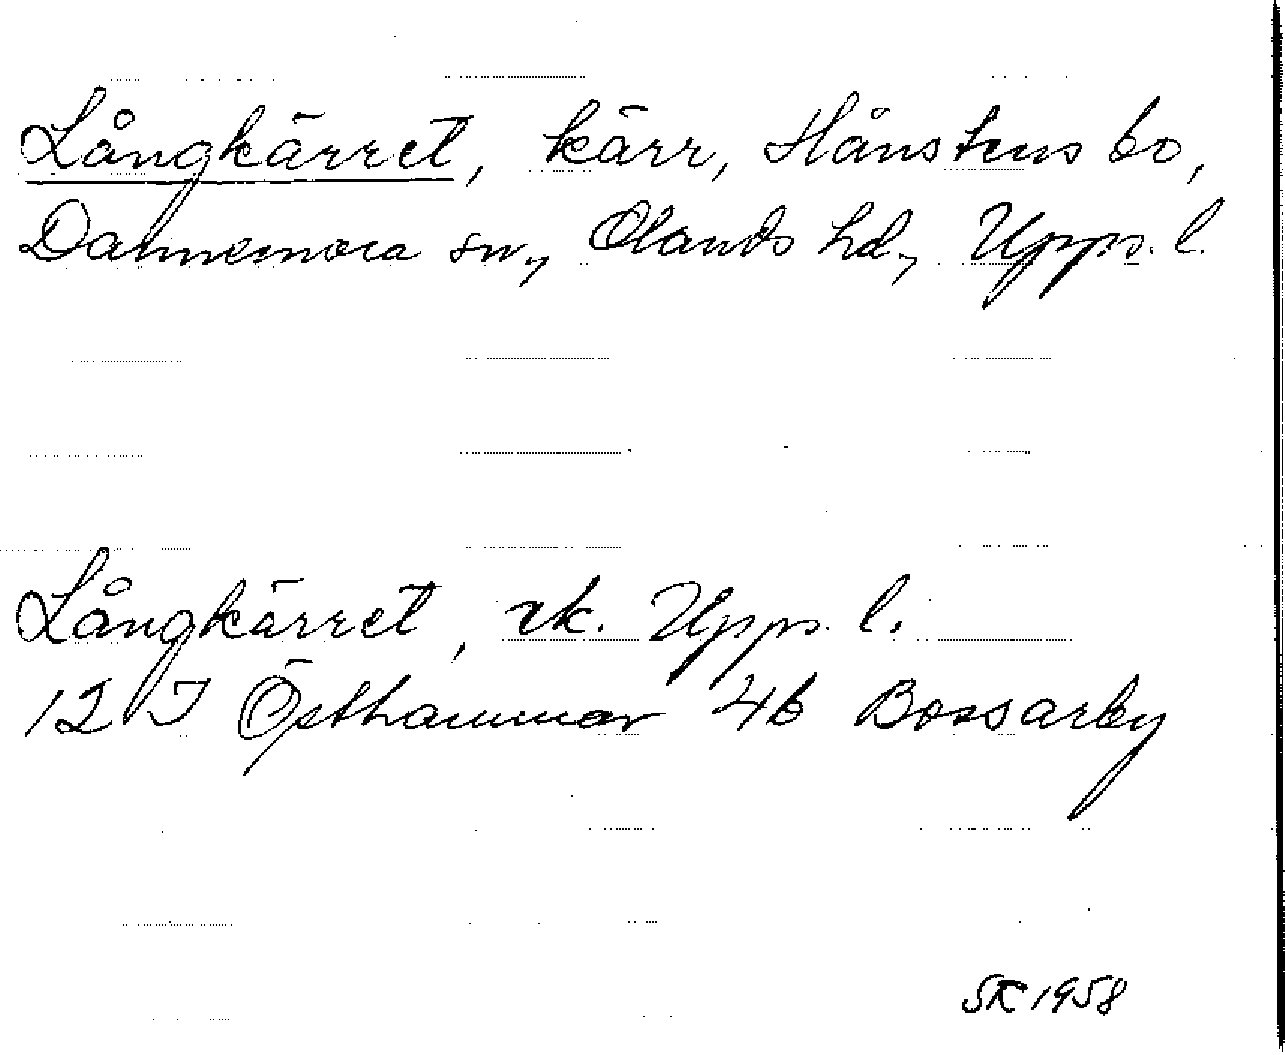 Långkärret, kärr, Hånstensbo,
Dannemora sn., Olands hd., Upps. l.
Långkärret, rk. Upps. l.
12 I Östhammar 4b Bossarby
SK 1958